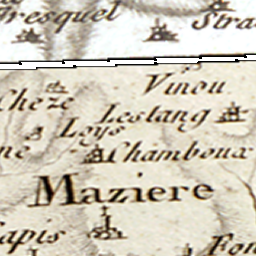 Tresquel
Stra
Vinou
Cheze
Lestang
Loys
ne
Chamboux
Maziere
apis
Fon